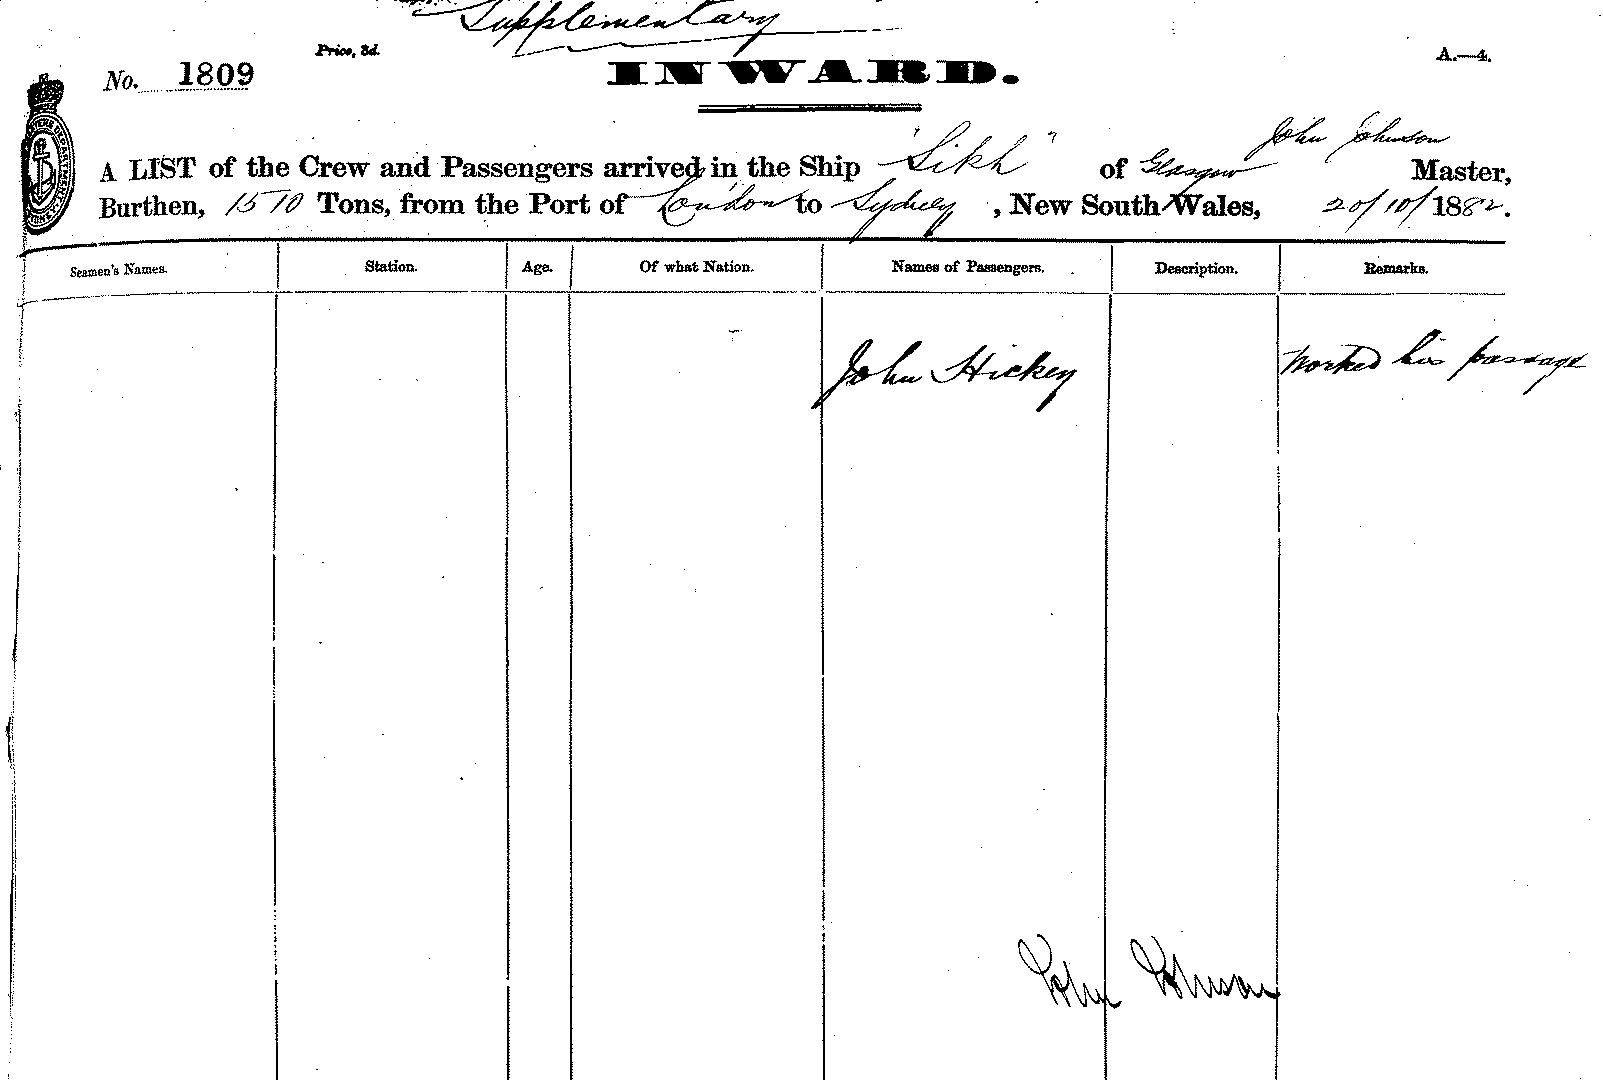 Supplementary
Price, 3d.
A.—4.
No. 1809
INWARD.
John Johnson
A LIST of the Crew and Passengers arrived in the Ship "Sikh" of Glasgow Master,
Burthen, 1510 Tons, from the Port of London to Sydney, New South Wales, 20/10/1882.
Seamen's Names. Station. Age. Of what Nation. Names of Passengers. Description. Remarks.
John Hickey Worked his passage
John Johnson